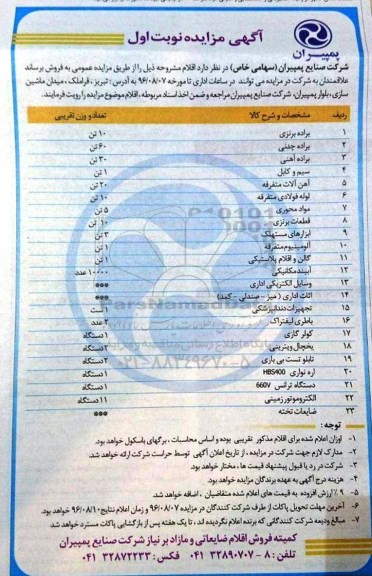 آگهی مزایده نوبت اول
پمپیران
شرکت صنایع پمپیران (سهامی خاص) در نظر دارد اقلام مشروحه ذیل را از طریق مزایده عمومی به فروش برساند
علاقمندان به شرکت در مزایده می توانند در ساعات اداری تا مورخه ۹۶/۰۸/۰۷ به آدرس: تبریز، قراملک، میدان ماشین
سازی، بلوار پمپیران، شرکت صنایع پمپیران مراجعه و ضمن اخذ اسناد مربوطه، اقلام موضوع مزایده را رویت فرمایند.
ردیف مشخصات و شرح کالا تعداد و وزن تقریبی
۱ براده برنزی ۱۰ تن
۲ براده چدنی ۶۰ تن
۳ براده آهنی ۳۰ تن
۴ سیم و کابل ۱ تن
۵ آهن آلات متفرقه ۲۰ تن
۶ لوله فولادی متفرقه ۱۰ تن
۷ مواد محوری ۵ تن
۸ قطعات برنزی ۱۰ تن
۹ ابزارهای مستهلک ۳ تن
۱۰ آلومینیوم متفرقه ۱ تن
۱۱ گالن و اقلام پلاستیکی ۱ تن
۱۲ آببند مکانیکی ۱۰۰۰۰ عدد
۱۳ وسایل الکتریکی اداری ***
۱۴ اثاث اداری (میز - صندلی - کمد) ***
۱۵ تجهیزات دندانپزشکی ۱ ست
۱۶ باطری لیفتراک ۲ عدد
۱۷ کولر گازی ۱ دستگاه
۱۸ یخچال ویترینی ۲ دستگاه
۱۹ تابلو تست بی باری ۲ دستگاه
۲۰ اره نواری HBS400 ۱ دستگاه
۲۱ دستگاه ترانس 660V ۱ دستگاه
۲۲ الکتروموتور زمینی ۱۱ دستگاه
۲۳ ضایعات تخته ***
توجه:
۱- اوزان اعلام شده برای اقلام مذکور تقریبی بوده و اساس محاسبات، برگهای باسکول خواهد بود.
۲- مدارک لازم جهت شرکت در مزایده، از تاریخ اعلان آگهی توسط حراست شرکت ارائه خواهد شد.
۳- شرکت در رد یا قبول پیشنهاد قیمت ها، مختار خواهد بود.
۴- هزینه درج آگهی به عهده برندگان مزایده خواهد بود.
۵- ۹٪ ارزش افزوده به قیمت های اعلام شده متقاضیان، اضافه خواهد شد.
۶- آخرین مهلت تحویل پاکات از طرف شرکت کنندگان در مزایده ۹۶/۰۸/۰۷ و زمان اعلام نتایج ۹۶/۰۸/۱۰ خواهد بود.
۷- مبالغ ودیعه شرکت کنندگانی که برنده اعلام نگردیده اند، تا یک هفته پس از بازگشایی پاکات مسترد خواهد شد.
کمیته فروش اقلام ضایعاتی و مازاد بر نیاز شرکت صنایع پمپیران
تلفن: ۸ - ۳۲۸۹۰۷۰۷ ۰۴۱ فکس: ۳۲۸۷۲۲۳۳ ۰۴۱